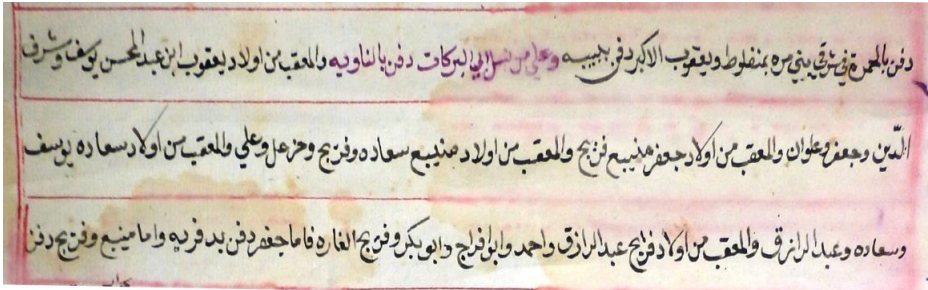 دفن بالمحمرة في شرقي بني مره بمنفلوط ويعقوب الاكبر دفن بلبيبيه وعلي من نسل ابي البركات دفن بالناويه والمعقب من اولاد يعقوب ابن عبد المحسن يوسف وشرف
الدين وجعفر وعلوان والمعقب من اولاد جعفر منيبع فريج والمعقب من اولاد منيبع سعاده وفريج وخزعل وعلي والمعقب من اولاد سعاده يوسف
وسعاده وعبد الرازق والمعقب من اولاد فرايج عبد الرازق واحمد وابو افراج وابو بكر وفريج الغاره فاما جعفر دفن بدفريه واما منيبع وفريج دفن